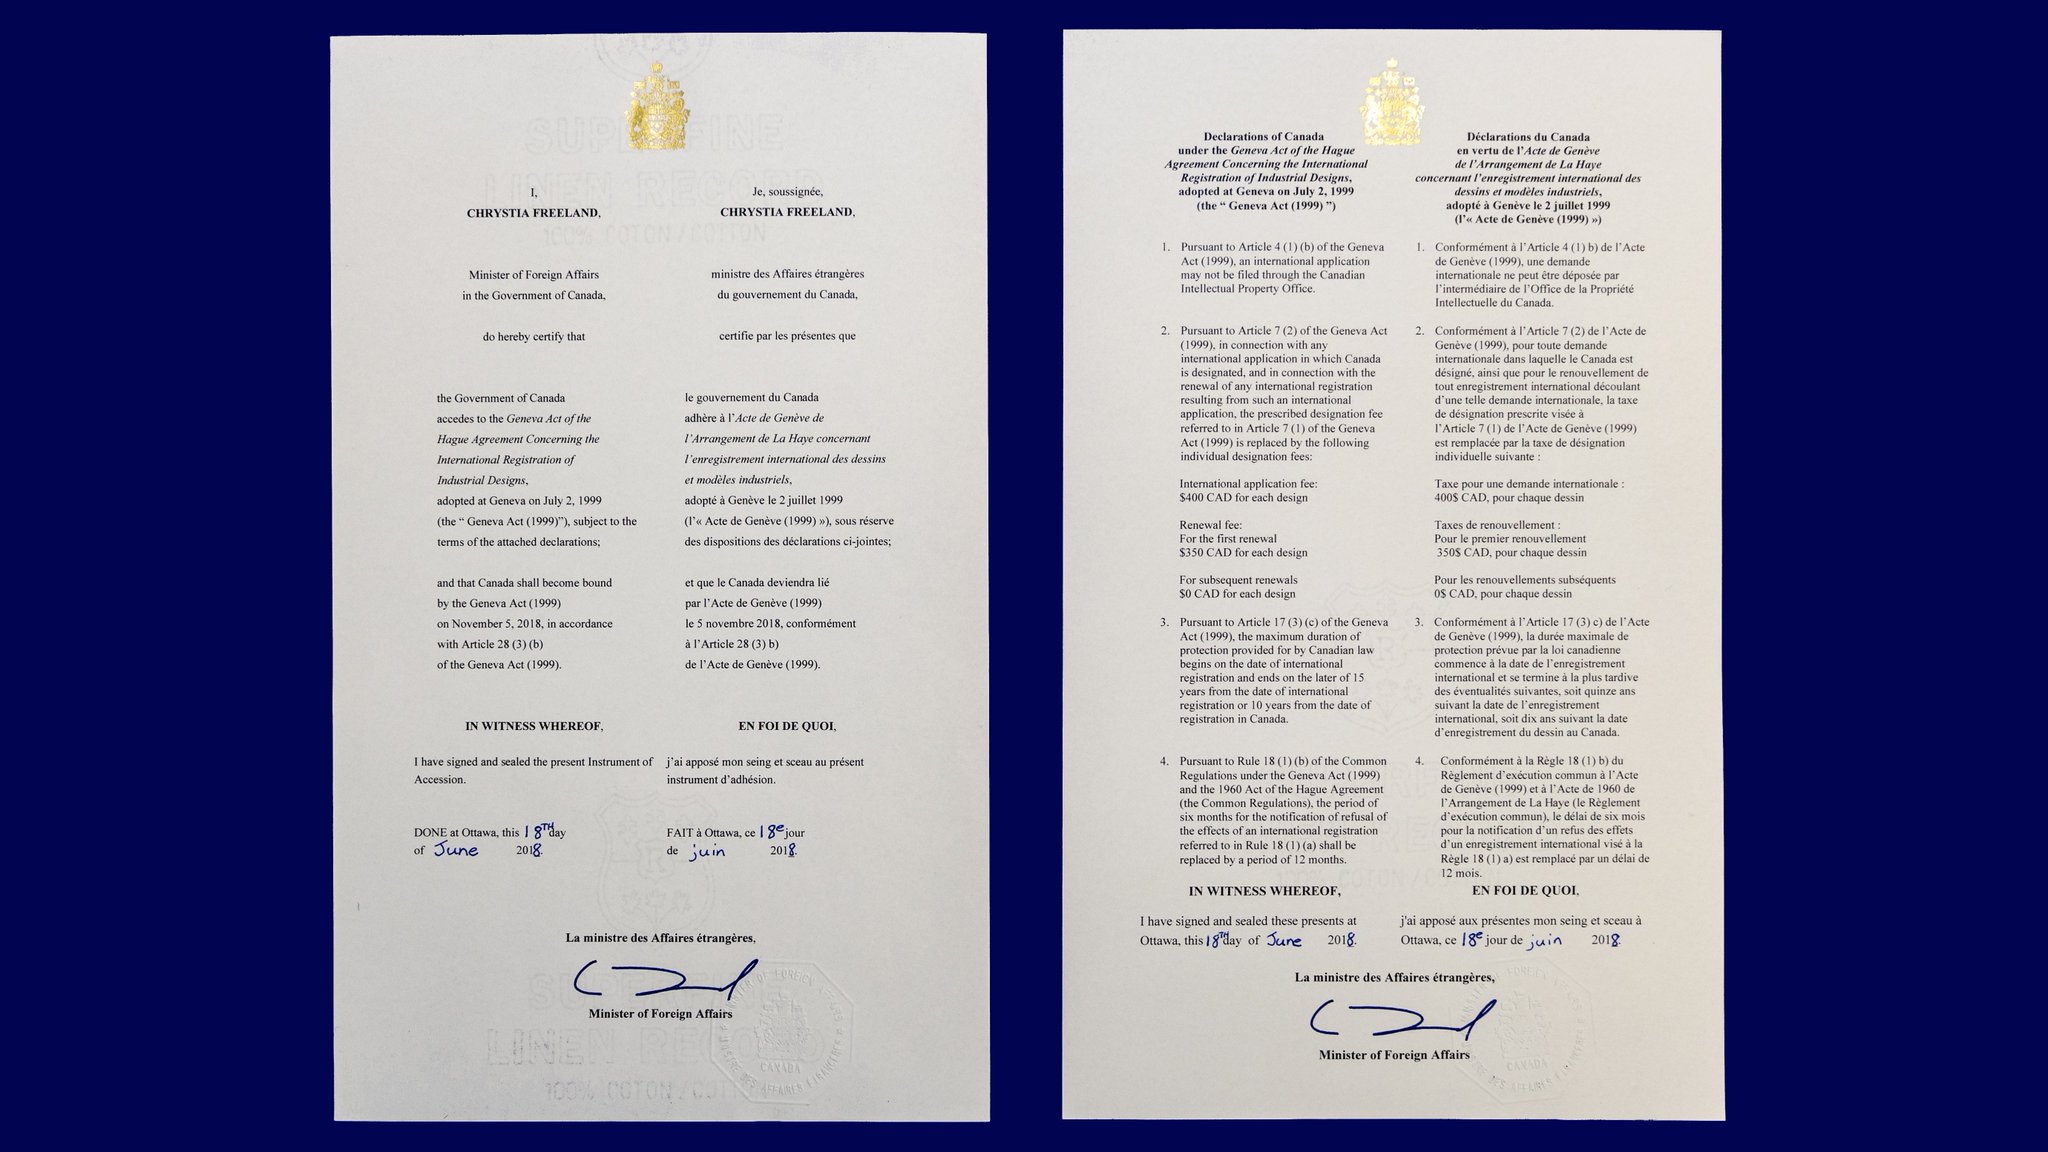 SUPERFINE
LINEN RECORD
100% COTON/COTTON
I,
CHRYSTIA FREELAND,
Minister of Foreign Affairs
in the Government of Canada,
do hereby certify that
the Government of Canada
accedes to the Geneva Act of the
Hague Agreement Concerning the
International Registration of
Industrial Designs,
adopted at Geneva on July 2, 1999
(the “ Geneva Act (1999)”), subject to the
terms of the attached declarations;
and that Canada shall become bound
by the Geneva Act (1999)
on November 5, 2018, in accordance
with Article 28 (3) (b)
of the Geneva Act (1999).
IN WITNESS WHEREOF,
I have signed and sealed the present Instrument of
Accession.
DONE at Ottawa, this 18TH day
of June 2018.
Je, soussignée,
CHRYSTIA FREELAND,
ministre des Affaires étrangères
du gouvernement du Canada,
certifie par les présentes que
le gouvernement du Canada
adhère à l’Acte de Genève de
l’Arrangement de La Haye concernant
l’enregistrement international des dessins
et modèles industriels,
adopté à Genève le 2 juillet 1999
(l’« Acte de Genève (1999) »), sous réserve
des dispositions des déclarations ci-jointes;
et que le Canada deviendra lié
par l’Acte de Genève (1999)
le 5 novembre 2018, conformément
à l’Article 28 (3) b)
de l’Acte de Genève (1999).
EN FOI DE QUOI,
j’ai apposé mon seing et sceau au présent
instrument d’adhésion.
FAIT à Ottawa, ce 18e jour
de juin 2018.
La ministre des Affaires étrangères,
Minister of Foreign Affairs
SUPERFINE
LINEN RECORD
100% COTON/COTTON
MINISTER OF FOREIGN AFFAIRS
MINISTÈRE DES AFFAIRES ÉTRANGÈRES
CANADA
Declarations of Canada
under the Geneva Act of the Hague
Agreement Concerning the International
Registration of Industrial Designs,
adopted at Geneva on July 2, 1999
(the “ Geneva Act (1999) ”)
1. Pursuant to Article 4 (1) (b) of the Geneva
Act (1999), an international application
may not be filed through the Canadian
Intellectual Property Office.
2. Pursuant to Article 7 (2) of the Geneva Act
(1999), in connection with any
international application in which Canada
is designated, and in connection with the
renewal of any international registration
resulting from such an international
application, the prescribed designation fee
referred to in Article 7 (1) of the Geneva
Act (1999) is replaced by the following
individual designation fees:
International application fee:
$400 CAD for each design
Renewal fee:
For the first renewal
$350 CAD for each design
For subsequent renewals
$0 CAD for each design
3. Pursuant to Article 17 (3) (c) of the Geneva
Act (1999), the maximum duration of
protection provided for by Canadian law
begins on the date of international
registration and ends on the later of 15
years from the date of international
registration or 10 years from the date of
registration in Canada.
4. Pursuant to Rule 18 (1) (b) of the Common
Regulations under the Geneva Act (1999)
and the 1960 Act of the Hague Agreement
(the Common Regulations), the period of
six months for the notification of refusal of
the effects of an international registration
referred to in Rule 18 (1) (a) shall be
replaced by a period of 12 months.
IN WITNESS WHEREOF,
I have signed and sealed these presents at
Ottawa, this 18TH day of June 2018.
Déclarations du Canada
en vertu de l’Acte de Genève
de l’Arrangement de La Haye
concernant l’enregistrement international des
dessins et modèles industriels,
adopté à Genève le 2 juillet 1999
(l’« Acte de Genève (1999) »)
1. Conformément à l’Article 4 (1) b) de l’Acte
de Genève (1999), une demande
internationale ne peut être déposée par
l’intermédiaire de l’Office de la Propriété
Intellectuelle du Canada.
2. Conformément à l’Article 7 (2) de l’Acte de
Genève (1999), pour toute demande
internationale dans laquelle le Canada est
désigné, ainsi que pour le renouvellement de
tout enregistrement international découlant
d’une telle demande internationale, la taxe
de désignation prescrite visée à
l’Article 7 (1) de l’Acte de Genève (1999)
est remplacée par la taxe de désignation
individuelle suivante :
Taxe pour une demande internationale :
400$ CAD, pour chaque dessin
Taxes de renouvellement :
Pour le premier renouvellement
350$ CAD, pour chaque dessin
Pour les renouvellements subséquents
0$ CAD, pour chaque dessin
3. Conformément à l’Article 17 (3) c) de l’Acte
de Genève (1999), la durée maximale de
protection prévue par la loi canadienne
commence à la date de l’enregistrement
international et se termine à la plus tardive
des éventualités suivantes, soit quinze ans
suivant la date de l’enregistrement
international, soit dix ans suivant la date
d’enregistrement du dessin au Canada.
4. Conformément à la Règle 18 (1) b) du
Règlement d’exécution commun à l’Acte
de Genève (1999) et à l’Acte de 1960 de
l’Arrangement de La Haye (le Règlement
d’exécution commun), le délai de six mois
pour la notification d’un refus des effets
d’un enregistrement international visé à la
Règle 18 (1) a) est remplacé par un délai de
12 mois.
EN FOI DE QUOI,
j'ai apposé aux présentes mon seing et sceau à
Ottawa, ce 18e jour de juin 2018.
La ministre des Affaires étrangères,
Minister of Foreign Affairs
CANADA